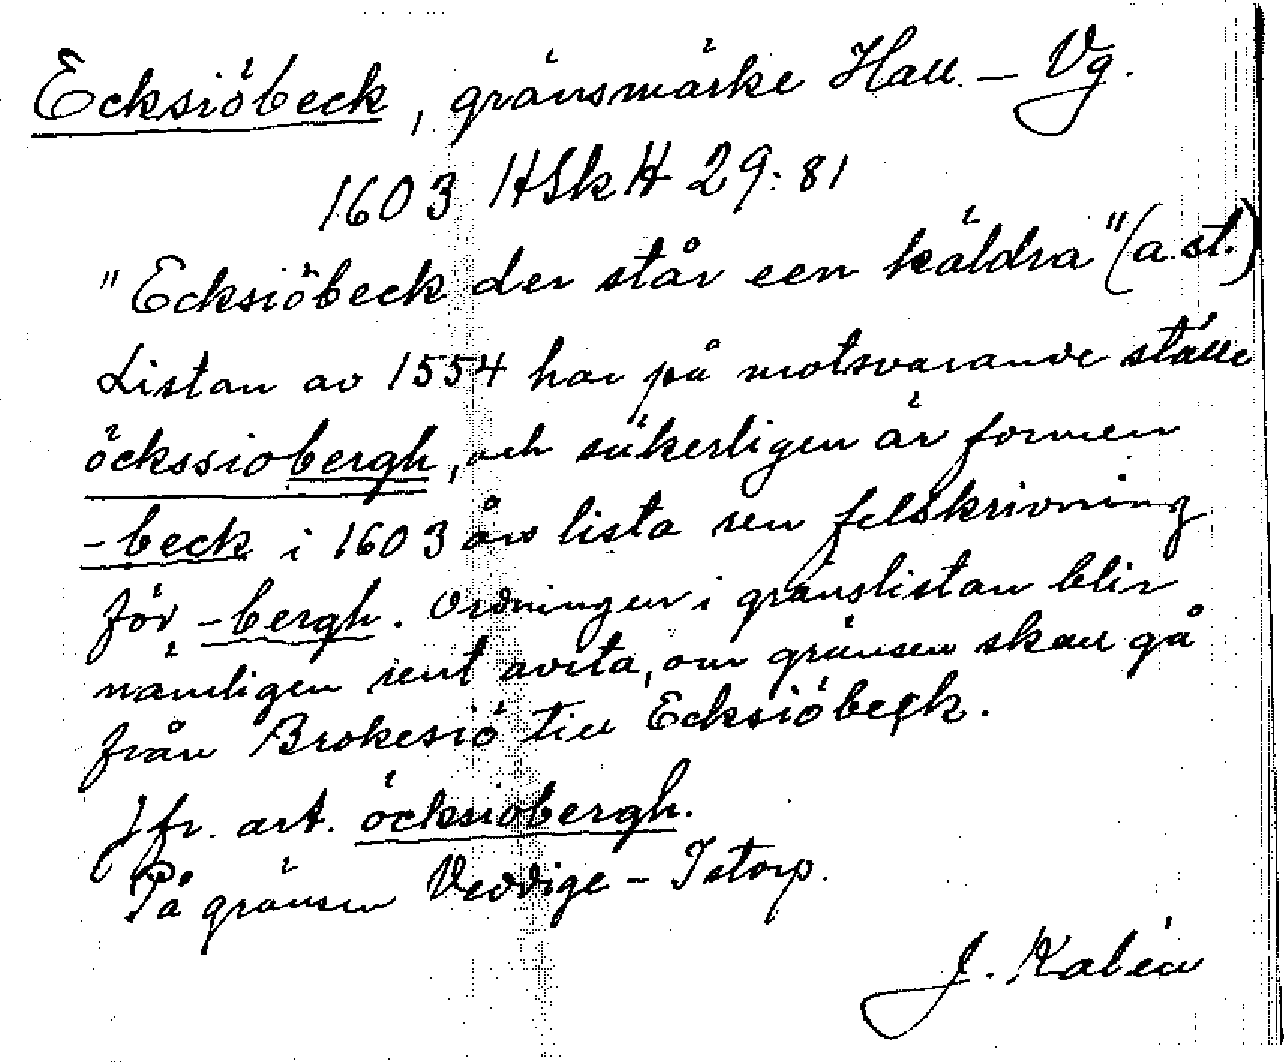 Ecksiöbeck, gränsmärke Hall. – Vg.
1603 HSkH 29:81
"Ecksiöbeck der står een käldra" (a.st.)
Listan av 1554 har på motsvarande ställe
öckssiobergh, och säkerligen är formen
-beck i 1603 års lista ren felskrivning
för -bergh. Ordningen i gränslistan blir
nämligen rent avita, om gränsen skall gå
från Brokesiö till Ecksiöbeck.
Jfr. art. öcksiobergh.
På gränsen Veddige – Istorp.
J. Kalén